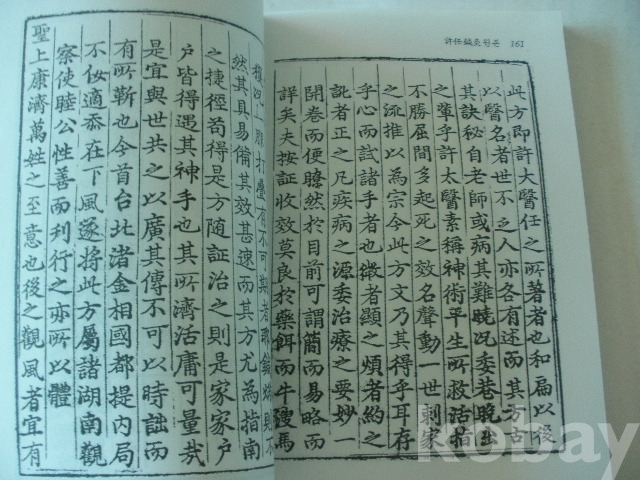 許任鍼灸원문 161
此方即許大醫任之所著者也和扁以後
以醫名者世不乏人亦各有述而其方古
其訣秘自老師或病其難曉况委巷晩生
之輩乎許太醫素稱神術平生所救活指
不勝屈間多起死之效名聲動一世刺家
之流推以為宗今此方文乃其得乎耳存
乎心而試諸手者也微者顯之煩者約之
訛者正之凡疾病之源委治療之要妙一
開卷而便瞭然於目前可謂簡而易略而
詳矣夫按証收效莫良於藥餌而牛溲馬
有不可期者耶鍼焫則不
然其具易備其效甚速而其方尤為指南
之捷徑苟得是方隨証治之則是家家户
户皆得遇其神手也其所濟活庸可量哉
是宜與世共之以廣其傳不可以時詘而
有所靳也今首台北渚金相國都提内局
不佞適忝在下風遂將此方屬諸湖南觀
察使睦公性善而刊行之亦所以體
聖上康濟萬姓之至意也後之觀風者宜有
kobay